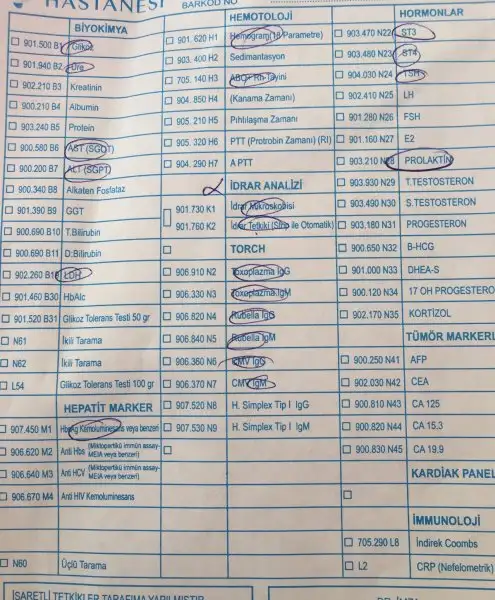 HASTANESİ
BARKOD NO
BİYOKİMYA
901.500 B1 Glikoz
901.940 B2 Üre
902.210 B3 Kreatinin
900.210 B4 Albumin
903.240 B5 Protein
900.580 B6 AST (SGOT)
900.200 B7 ALT (SGPT)
900.340 B8 Alkaten Fosfataz
901.390 B9 GGT
900.690 B10 T.Bilirubin
900.690 B11 D.Bilirubin
902.260 B18 LDH
901.460 B30 HbAlc
901.520 B31 Glikoz Tolerans Testi 50 gr
N61 İkili Tarama
N62 İkili Tarama
L54 Glikoz Tolerans Testi 100 gr
HEPATİT MARKER
907.450 M1 HbsAg Kemoluminesans veya benzeri
906.620 M2 Anti Hbs (Miktopertikü immün assay-
MEIA veya benzeri)
906.640 M3 Anti HCV (Miktopertikü immün assay-
MEIA veya benzeri)
906.670 M4 Anti HIV Kemoluminesans
N60 Üçlü Tarama
HEMOTOLOJİ
901. 620 H1 Hemogram(18 Parametre)
903. 400 H2 Sedimantasyon
705. 140 H3 ABO+ Rh Tayini
904. 850 H4 (Kanama Zamanı)
905. 210 H5 Pıhtılaşma Zamanı
905. 320 H6 PTT (Protrobin Zamanı) (RI)
904. 290 H7 A PTT
İDRAR ANALİZİ
901.730 K1 İdrar Mikroskobisi
901.760 K2 İdrar Tetkiki (Strip ile Otomatik)
TORCH
906.910 N2 Toxoplazma IgG
906.330 N3 Toxoplazma IgM
906.820 N4 Rubella IgG
906.840 N5 Rubella IgM
906.360 N6 CMV IgG
906.370 N7 CMV IgM
907.520 N8 H. Simplex Tip I IgG
907.530 N9 H. Simplex Tip I IgM
HORMONLAR
903.470 N22 ST3
903.480 N23 ST4
904.030 N24 TSH
902.410 N25 LH
901.280 N26 FSH
901.160 N27 E2
903.210 N28 PROLAKTİN
903.930 N29 T.TESTOSTERON
903.490 N30 S.TESTOSTERON
903.180 N31 PROGESTERON
900.650 N32 B-HCG
901.000 N33 DHEA-S
900.120 N34 17 OH PROGESTERO
902.170 N35 KORTİZOL
TÜMÖR MARKERL
900.250 N41 AFP
902.030 N42 CEA
900.810 N43 CA 125
900.820 N44 CA 15.3
900.830 N45 CA 19.9
KARDİAK PANEL
İMMUNOLOJİ
705.290 L8 İndirek Coombs
L2 CRP (Nefelometrik)
İŞARETLİ TETKİKLER TARAFIMA YAPILMIŞTIR